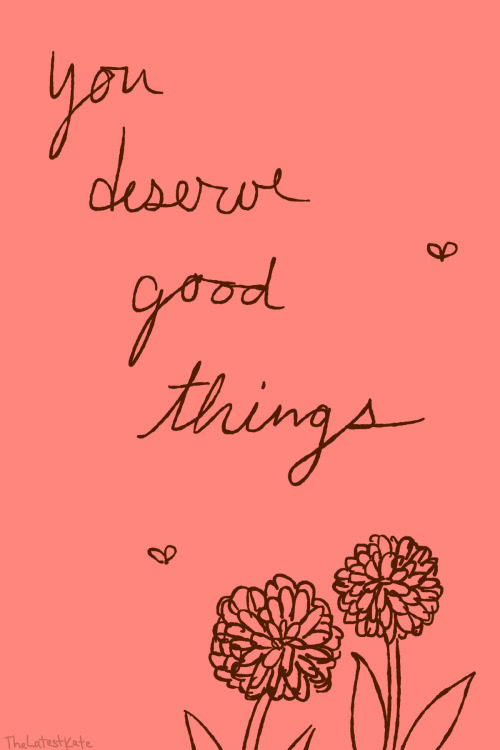 you
deserve
good
things
TheLatestKate